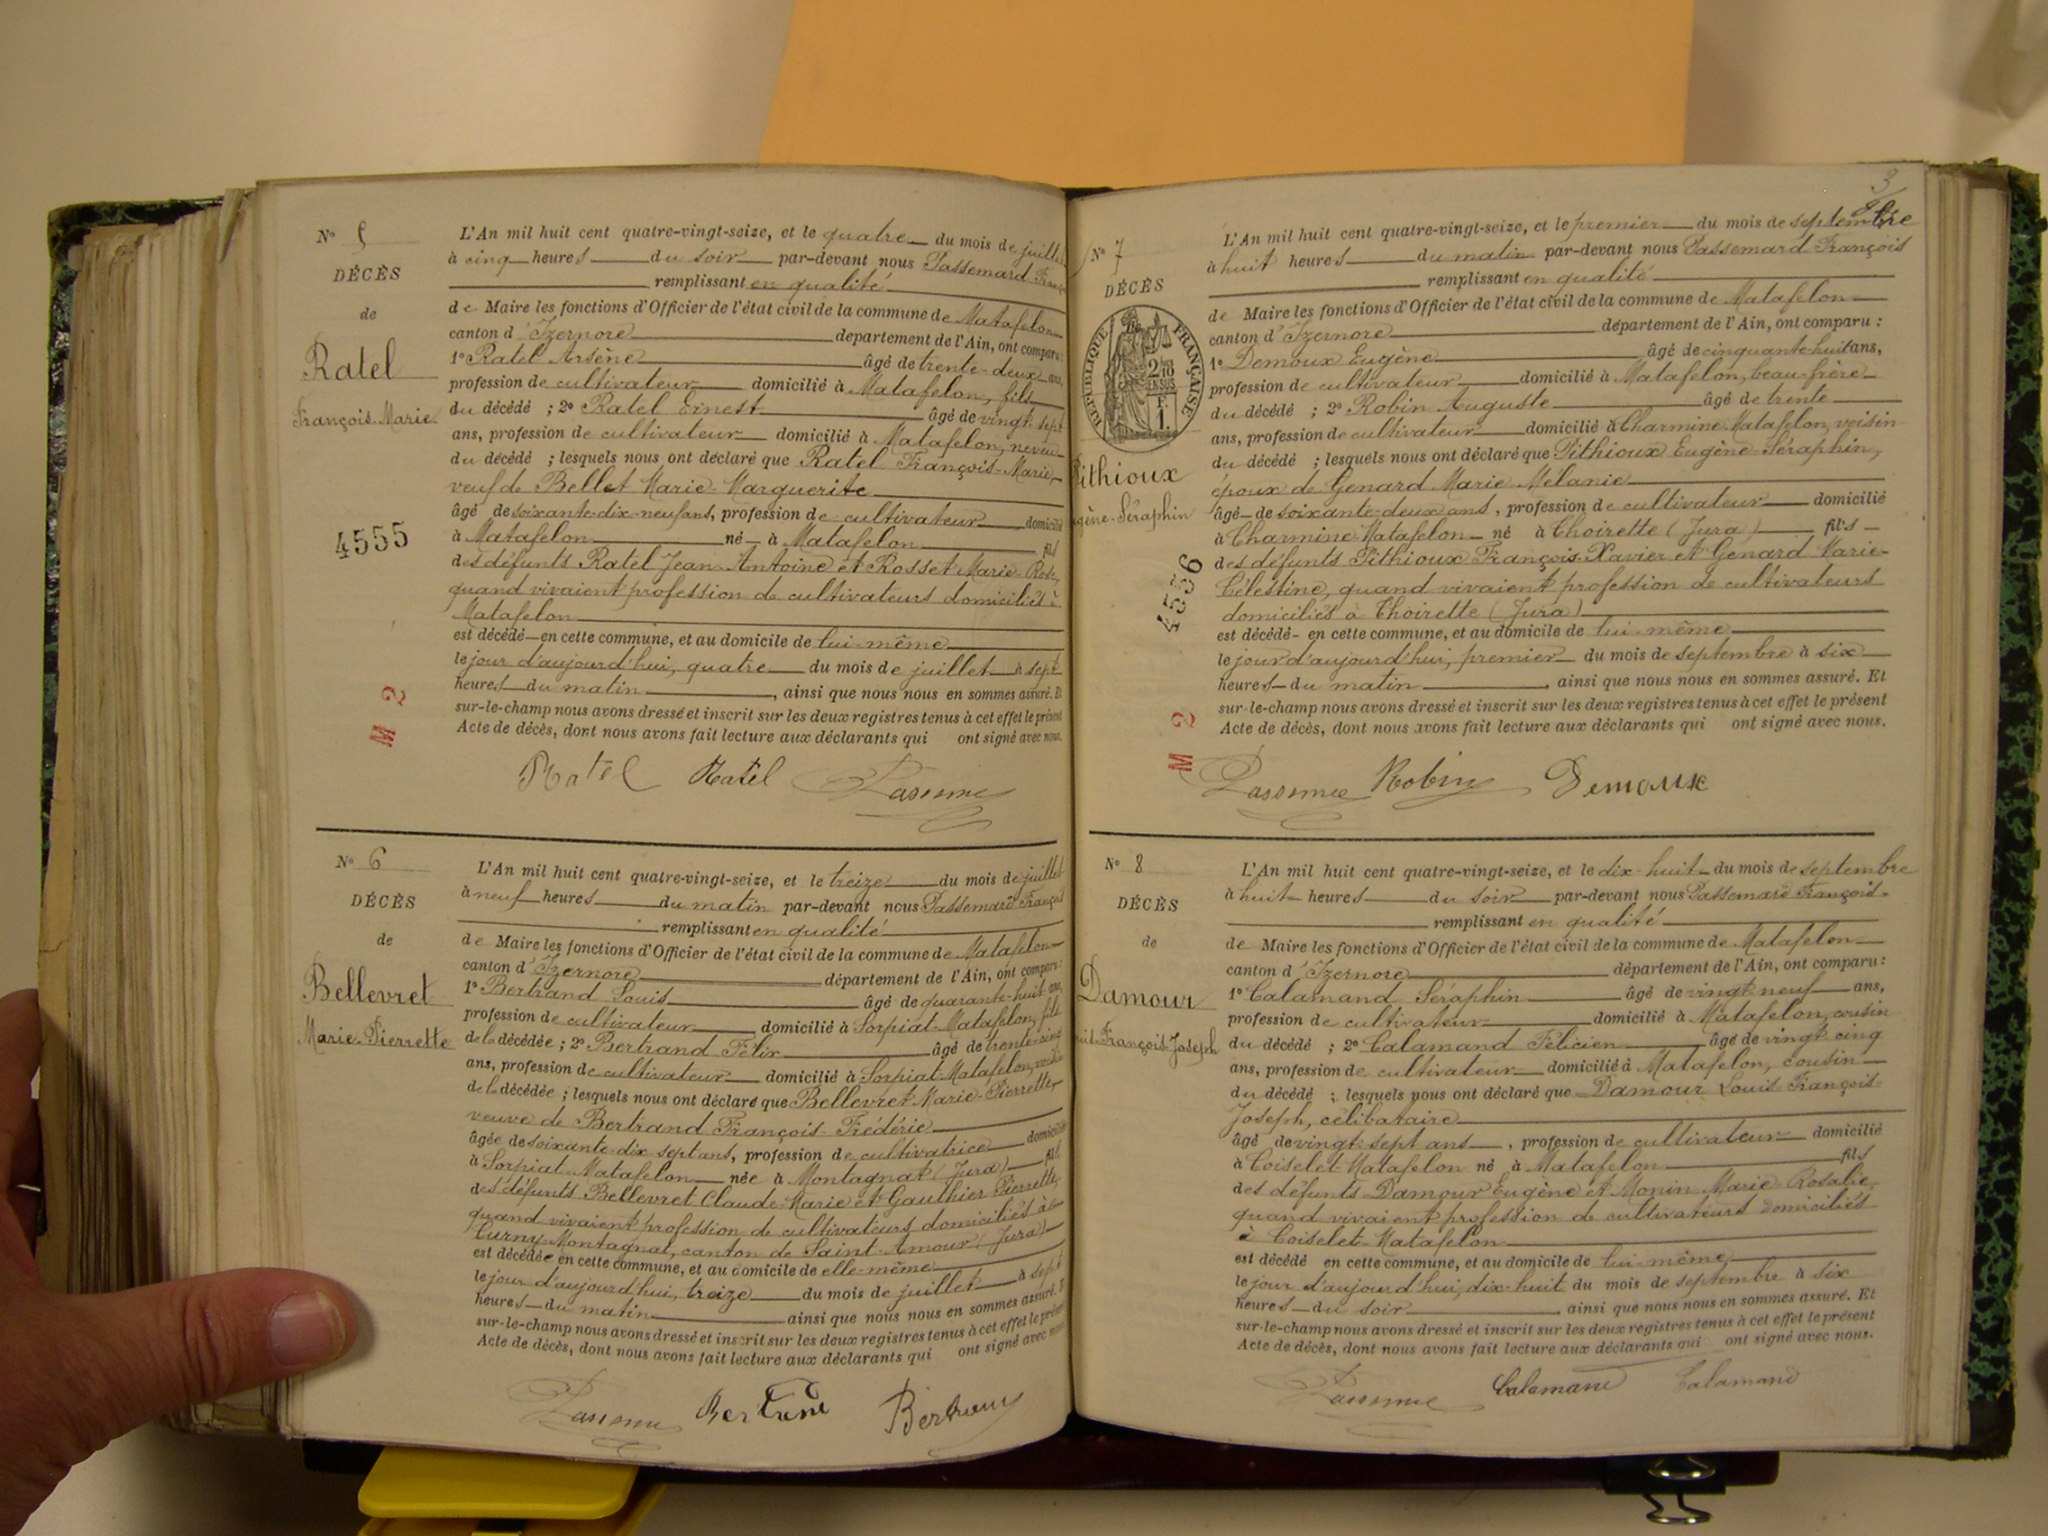 N° 5
DÉCÈS
de
Ratel
François-Marie
4555
M 2
L'An mil huit cent quatre-vingt-seize, et le quatre du mois de juillet
à cinq heures du soir par-devant nous Passemard
remplissant en qualité
de Maire les fonctions d'Officier de l'état civil de la commune de Matafelon
canton d'Izernore département de l'Ain, ont comparu:
1° Ratel Arsène âgé de trente-deux ans,
profession de cultivateur domicilié à Matafelon, fils
du décédé ; 2° Ratel Ernest âgé de vingt-sept
ans, profession de cultivateur domicilié à Matafelon, neveu
du décédé ; lesquels nous ont déclaré que Ratel François-Marie,
veuf de Bellet Marie-Marguerite
âgé de soixante-dix-neuf ans, profession de cultivateur domicilié
à Matafelon né à Matafelon fils
des défunts Ratel Jean-Antoine et Rosset Marie-Rose,
quand vivaient profession de cultivateurs domiciliés à
Matafelon
est décédé en cette commune, et au domicile de lui-même
le jour d'aujourd'hui, quatre du mois de juillet à sept
heures du matin, ainsi que nous nous en sommes assuré. Et
sur-le-champ nous avons dressé et inscrit sur les deux registres tenus à cet effet le présent
Acte de décès, dont nous avons fait lecture aux déclarants qui ont signé avec nous.
Ratel Ratel
N° 6
DÉCÈS
de
Bellevret
Marie-Pierrette
L'An mil huit cent quatre-vingt-seize, et le treize du mois de juillet
à neuf heures du matin par-devant nous Passemard François
remplissant en qualité
de Maire les fonctions d'Officier de l'état civil de la commune de Matafelon
canton d'Izernore département de l'Ain, ont comparu:
1° Bertrand Louis âgé de quarante-huit ans,
profession de cultivateur domicilié à Sorpiat-Matafelon, fils
de la décédée ; 2° Bertrand Félix âgé de trente-cinq
ans, profession de cultivateur domicilié à Sorpiat-Matafelon, voisin
de la décédée ; lesquels nous ont déclaré que Bellevret Marie-Pierrette,
veuve de Bertrand François-Frédéric
âgée de soixante-dix-sept ans, profession de cultivatrice domiciliée
à Sorpiat-Matafelon née à Montagnat (Jura) fille
des défunts Bellevret Claude-Marie et Gauthier Pierrette,
quand vivaient profession de cultivateurs domiciliés à
Curny-Montagnat, canton de Saint-Amour (Jura)
est décédée en cette commune, et au domicile de elle-même
le jour d'aujourd'hui, treize du mois de juillet à sept
heures du matin ainsi que nous nous en sommes assuré. Et
sur-le-champ nous avons dressé et inscrit sur les deux registres tenus à cet effet le présent
Acte de décès, dont nous avons fait lecture aux déclarants qui ont signé avec nous.
Bertrand Bertrand
3
N° 7
DÉCÈS
RÉPUBLIQUE FRANÇAISE
Pithioux
gène-Séraphin
4556
M 2
L'An mil huit cent quatre-vingt-seize, et le premier du mois de septembre
à huit heures du matin par-devant nous Passemard François
remplissant en qualité
de Maire les fonctions d'Officier de l'état civil de la commune de Matafelon
canton d'Izernore département de l'Ain, ont comparu :
1° Demoux Eugène âgé de cinquante-huit ans,
profession de cultivateur domicilié à Matafelon, beau-frère
du décédé ; 2° Robin Auguste âgé de trente
ans, profession de cultivateur domicilié à Charmine-Matafelon, voisin
du décédé ; lesquels nous ont déclaré que Pithioux Eugène-Séraphin,
époux de Genard Marie-Mélanie
âgé de soixante-deux ans, profession de cultivateur domicilié
à Charmine-Matafelon né à Thoirette (Jura) fils
des défunts Pithioux François-Xavier et Genard Marie-
Célestine, quand vivaient profession de cultivateurs
domiciliés à Thoirette (Jura)
est décédé en cette commune, et au domicile de lui-même
le jour d'aujourd'hui, premier du mois de septembre à six
heures du matin, ainsi que nous nous en sommes assuré. Et
sur-le-champ nous avons dressé et inscrit sur les deux registres tenus à cet effet le présent
Acte de décès, dont nous avons fait lecture aux déclarants qui ont signé avec nous.
Robin Demoux
N° 8
DÉCÈS
de
Damour
François-Joseph
L'An mil huit cent quatre-vingt-seize, et le dix-huit du mois de septembre
à huit heures du soir par-devant nous Passemard François
remplissant en qualité
de Maire les fonctions d'Officier de l'état civil de la commune de Matafelon
canton d'Izernore département de l'Ain, ont comparu:
1° Calamand Séraphin âgé de vingt-neuf ans,
profession de cultivateur domicilié à Matafelon, cousin
du décédé ; 2° Calamand Félicien âgé de vingt-cinq
ans, profession de cultivateur domicilié à Matafelon, cousin
du décédé ; lesquels nous ont déclaré que Damour Louis-François-
Joseph, célibataire
âgé de vingt-sept ans, profession de cultivateur domicilié
à Coiselet-Matafelon né à Matafelon fils
des défunts Damour Eugène et Monin Marie-Rosalie,
quand vivaient profession de cultivateurs domiciliés
à Coiselet-Matafelon
est décédé en cette commune, et au domicile de lui-même
le jour d'aujourd'hui, dix-huit du mois de septembre à six
heures du soir, ainsi que nous nous en sommes assuré. Et
sur-le-champ nous avons dressé et inscrit sur les deux registres tenus à cet effet le présent
Acte de décès, dont nous avons fait lecture aux déclarants qui ont signé avec nous.
Calamand Calamand